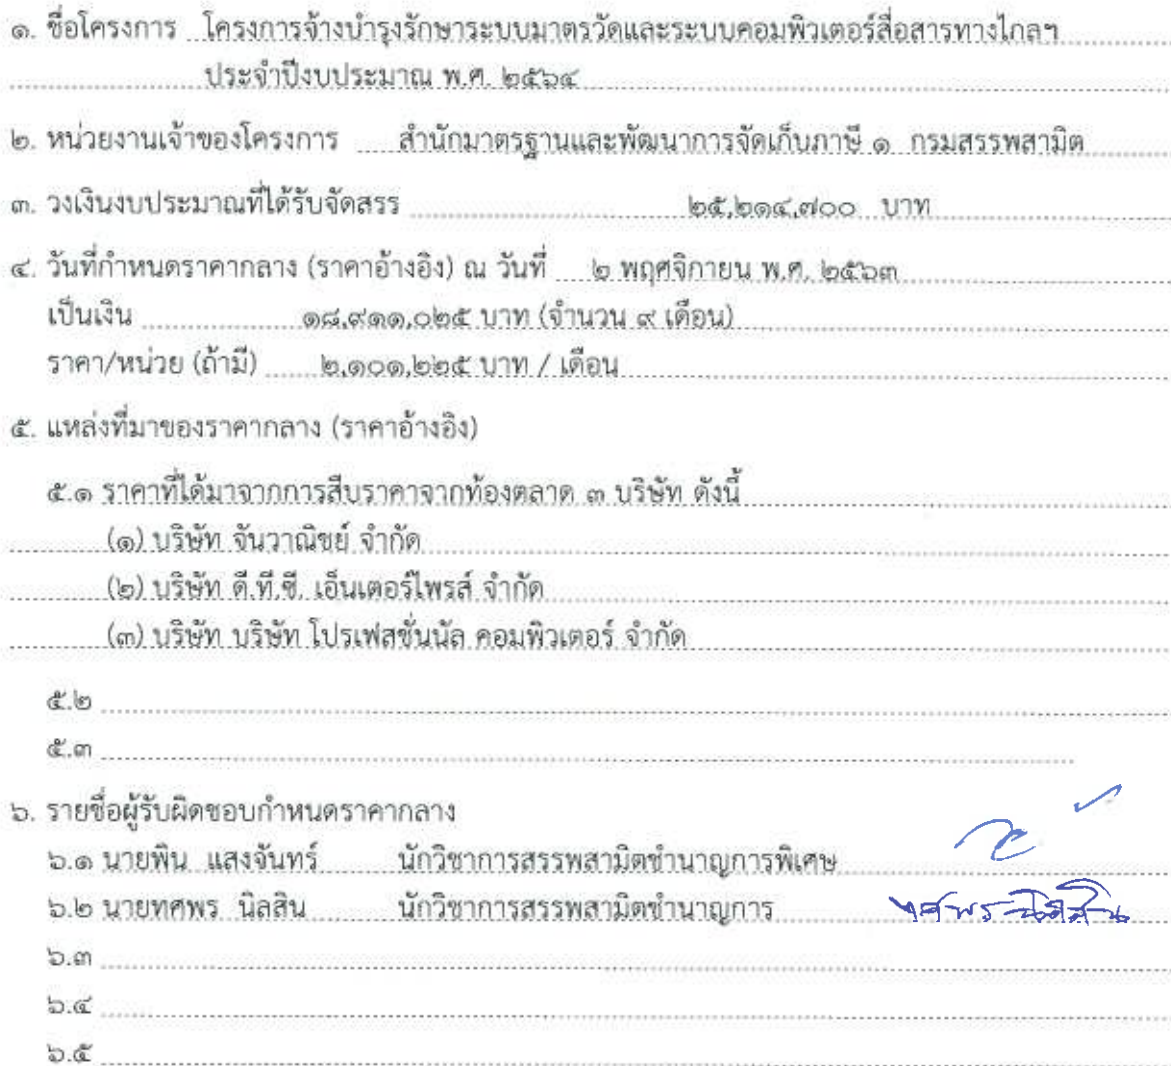 ๑. ชื่อโครงการ โครงการจ้างบำรุงรักษาระบบมาตรวัดและระบบคอมพิวเตอร์สื่อสารทางไกลฯ
ประจำปีงบประมาณ พ.ศ. ๒๕๖๔
๒. หน่วยงานเจ้าของโครงการ สำนักมาตรฐานและพัฒนาการจัดเก็บภาษี ๑ กรมสรรพสามิต
๓. วงเงินงบประมาณที่ได้รับจัดสรร ๒๕,๒๑๔,๗๐๐ บาท
๔. วันที่กำหนดราคากลาง (ราคาอ้างอิง) ณ วันที่ ๒ พฤศจิกายน พ.ศ. ๒๕๖๓
เป็นเงิน ๑๘,๙๑๑,๐๒๕ บาท (จำนวน ๙ เดือน)
ราคา/หน่วย (ถ้ามี) ๒,๑๐๑,๒๒๕ บาท / เดือน
๕. แหล่งที่มาของราคากลาง (ราคาอ้างอิง)
๕.๑ ราคาที่ได้มาจากการสืบราคาจากท้องตลาด ๓ บริษัท ดังนี้
(๑) บริษัท จันวาณิชย์ จำกัด
(๒) บริษัท ดี.ที.ซี. เอ็นเตอร์ไพรส์ จำกัด
(๓) บริษัท บริษัท โปรเฟสชั่นนัล คอมพิวเตอร์ จำกัด
๕.๒
๕.๓
๖. รายชื่อผู้รับผิดชอบกำหนดราคากลาง
๖.๑ นายพิน แสงจันทร์ นักวิชาการสรรพสามิตชำนาญการพิเศษ
๖.๒ นายทศพร นิลสิน นักวิชาการสรรพสามิตชำนาญการ ทศพร นิลสิน
๖.๓
๖.๔
๖.๕